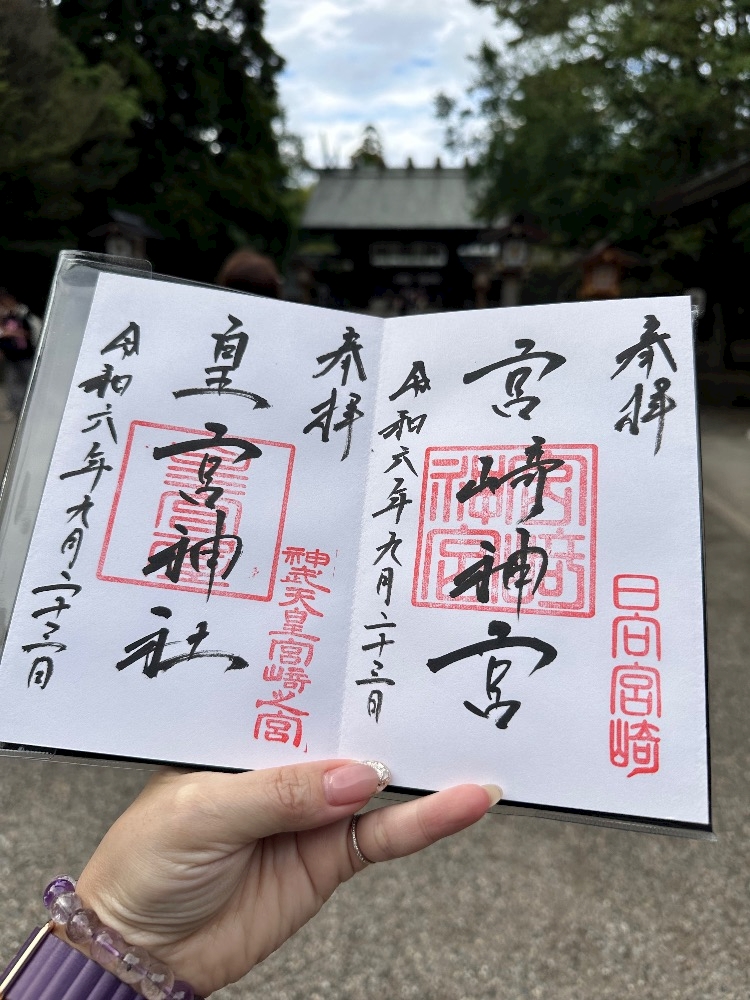 奉拝
日向宮崎
宮崎神宮
宮崎
神宮
令和六年九月二十三日
奉拝
神武天皇宮崎之宮
皇宮神社
令和六年九月二十三日